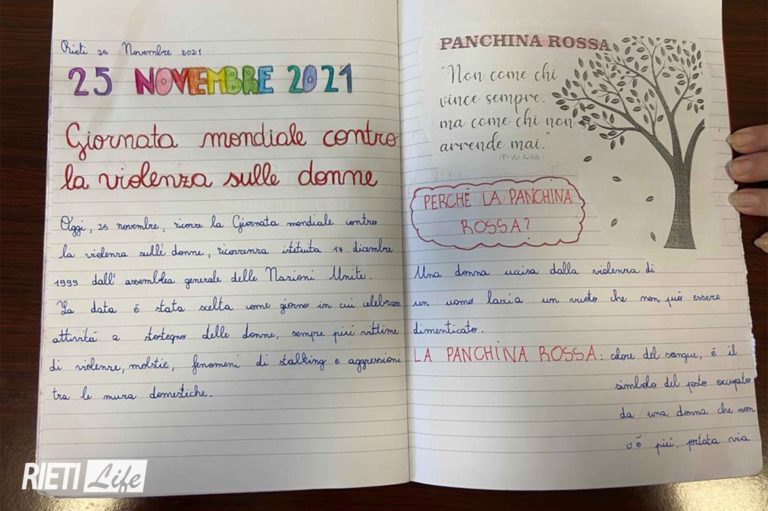 Rieti 25 Novembre 2021
25 NOVEMBRE 2021
Giornata mondiale contro
la violenza sulle donne
Oggi, 25 novembre, ricorre la Giornata mondiale contro
la violenza sulle donne, ricorrenza istituita 17 dicembre
1999 dall' assemblea generale delle Nazioni Unite.
La data é stata scelta come giorno in cui celebrare
attivitá a sostegno delle donne, sempre piú vittime
di violenze, molstie, fenomeni di stalking e aggressioni
tra le mura domestiche.
PANCHINA ROSSA
"Non come chi
vince sempre,
ma come chi non
arrende mai."
(Frida Kahlo)
PERCHÉ LA PANCHINA
ROSSA?
Una donna uccisa dalla violenza di
un uomo lascia un vuoto che non puó essere
dimenticato.
LA PANCHINA ROSSA: colore del sangue, é il
simbolo del posto occupato
da una donna che non
c'é piú, portata via
RIETI Life